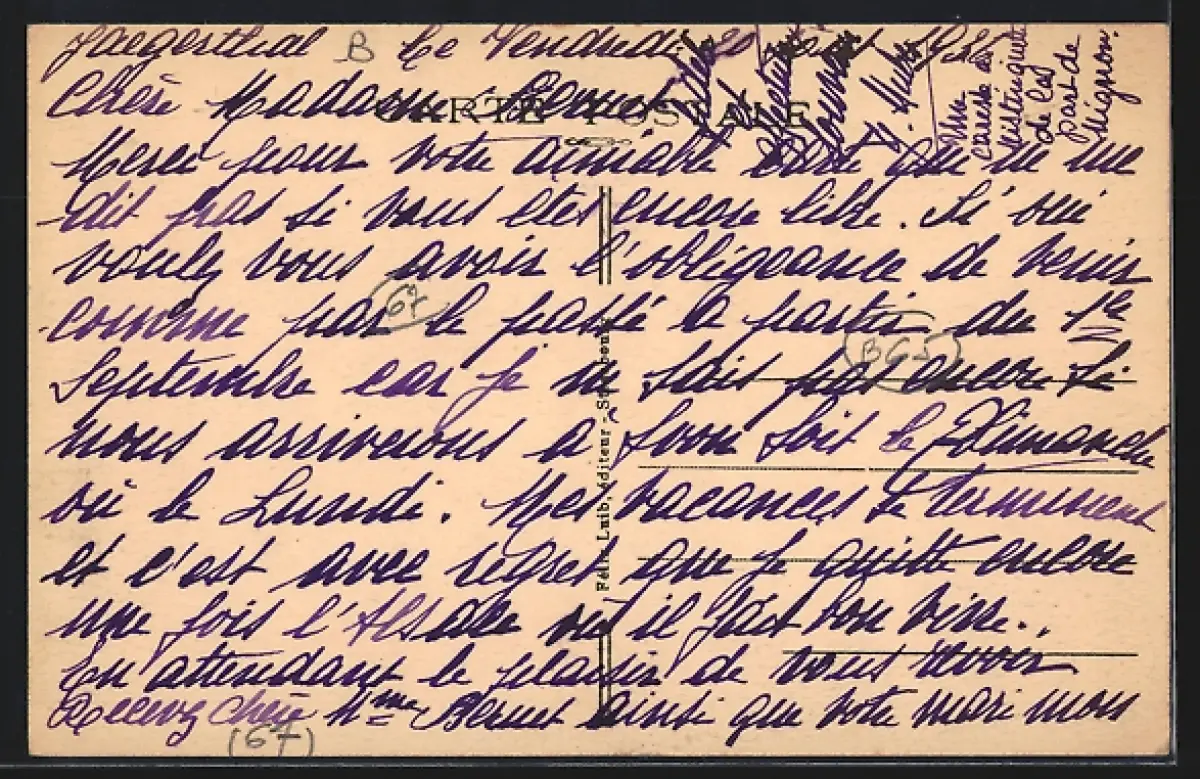 Jaegersthal B Ce Vendredi 20
CARTE POSTALE
Chère Madame Bernet
Merci pour votre aimable carte qui ne me
dit pas si vous êtes encore libre. Si oui
voulez vous avoir l'obligeance de venir
comme par le passé à partir du 1er
67
Septembre car je ne sais pas encore si
BG5
nous arriverons à Lyon soit le Dimanche
ou le Lundi. Mes vacances se terminent
et c'est avec regret que je quitte encore
une fois l'Alsace où il fait bon vivre..
En attendant le plaisir de vous revoir
Recevez chère Mme Bernet ainsi que votre mari mon
(67)
Une
caresse à
Mistinguette
de la
part de
Mignon.
Félix Luib, éditeur - Strasbourg